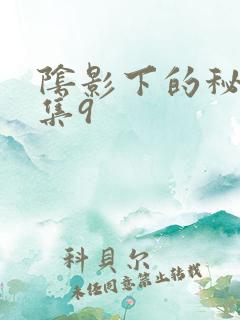 陰影下的秘
集9
科貝尔
未经同意禁止转载